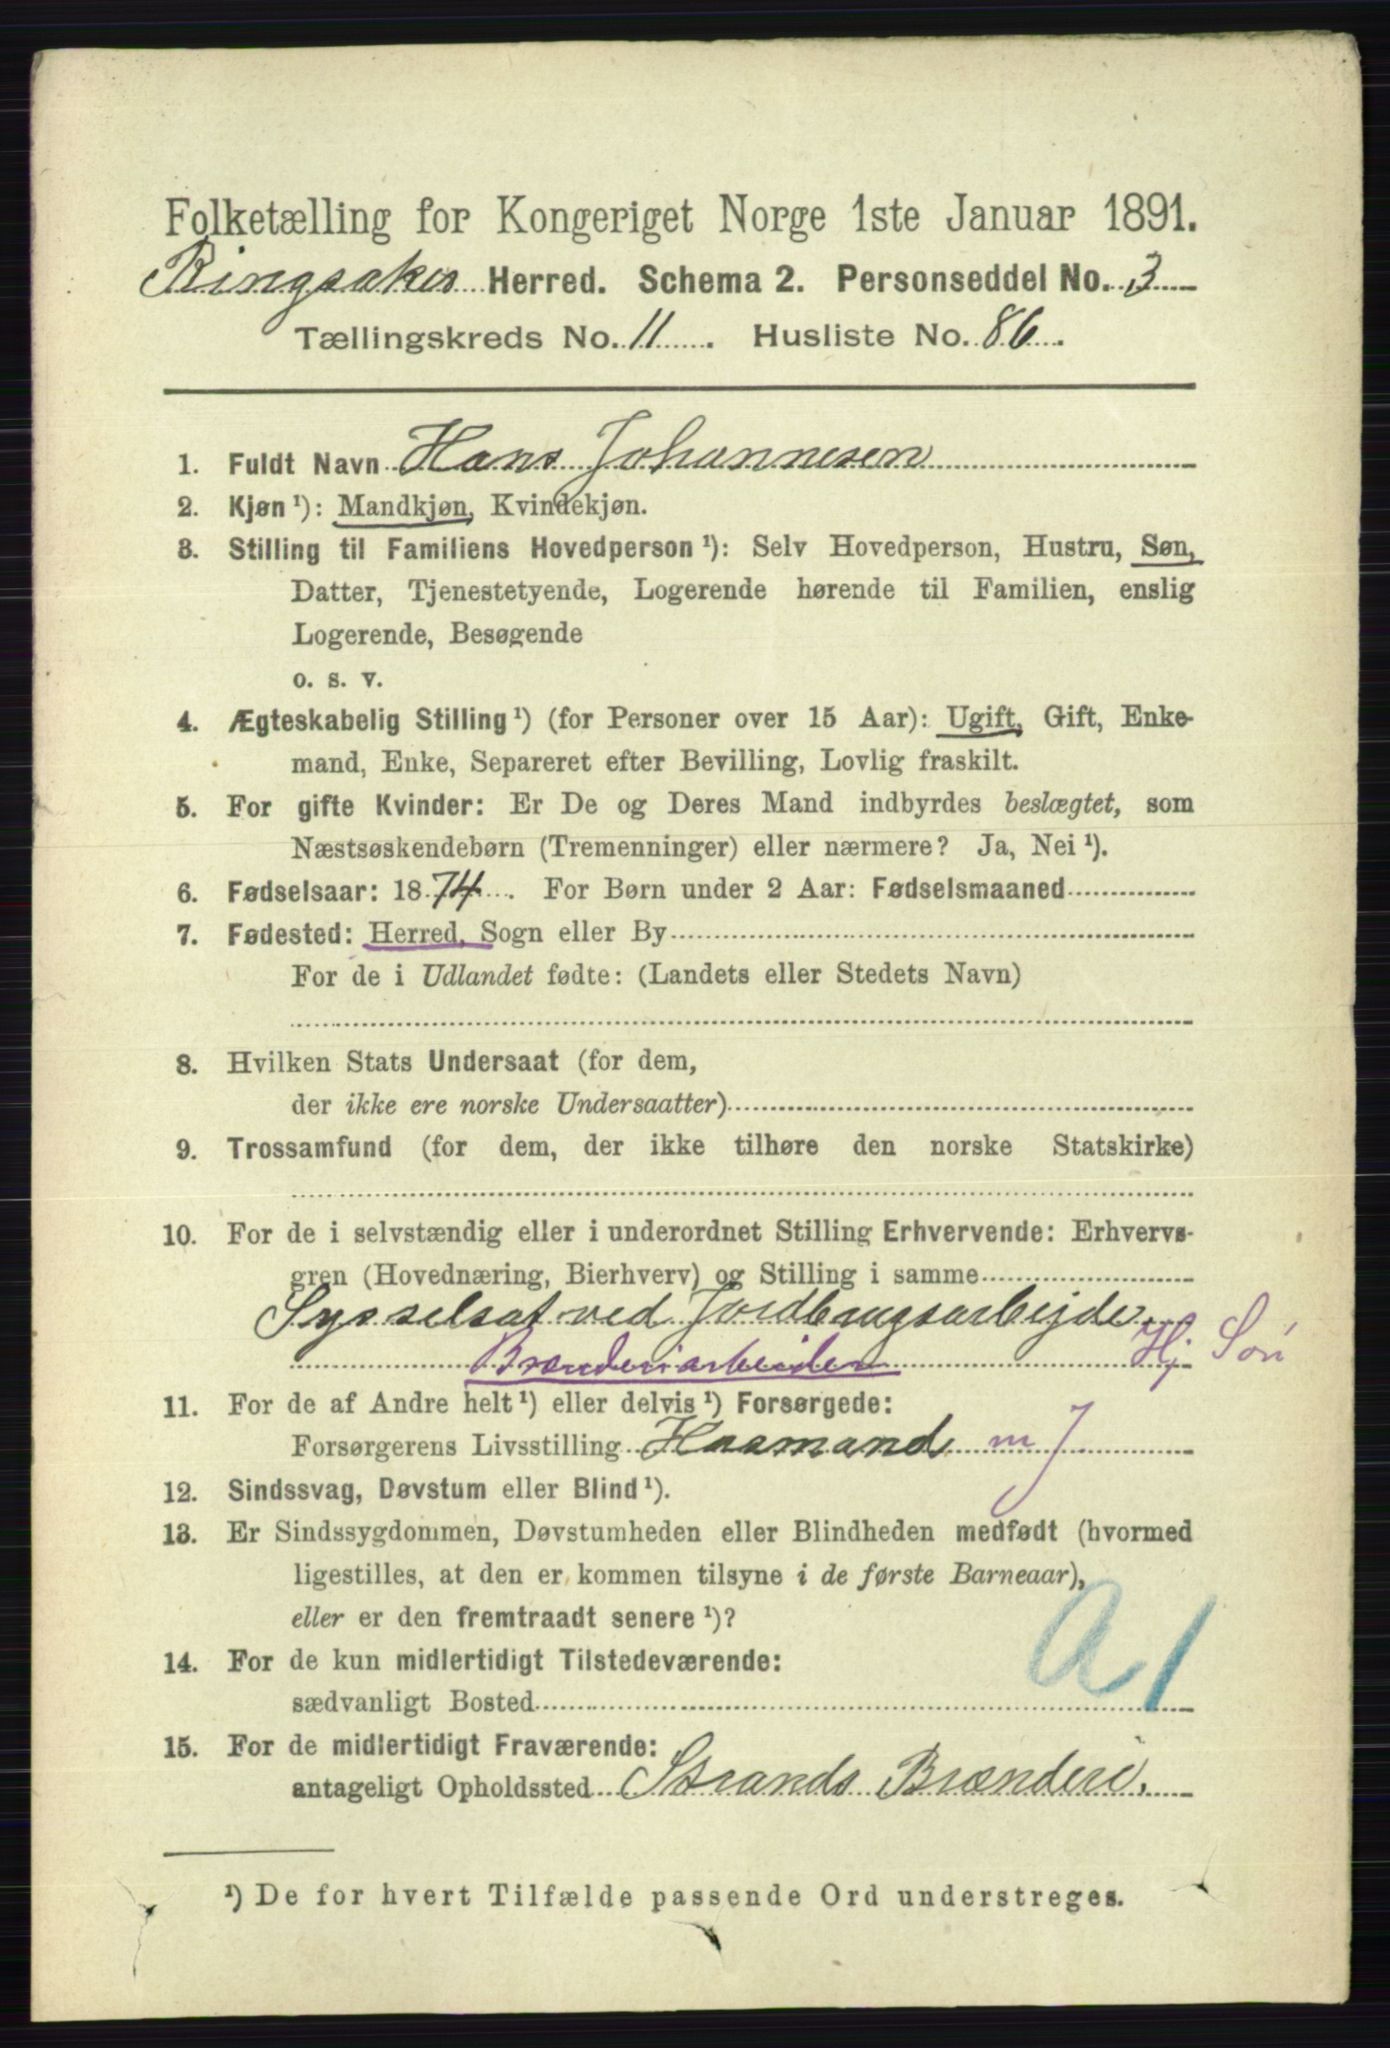 Folketælling for Kongeriget Norge 1ste Januar 1891.
Ringsaker Herred. Schema 2. Personseddel No. 3
Tællingskreds No. 11. Husliste No. 86.
1. Fuldt Navn Hans Johannesen
2. Kjøn ¹): Mandkjøn, Kvindekjøn.
3. Stilling til Familiens Hovedperson ¹): Selv Hovedperson, Hustru, Søn,
Datter, Tjenestetyende, Logerende hørende til Familien, enslig
Logerende, Besøgende
o. s. v.
4. Ægteskabelig Stilling ¹) (for Personer over 15 Aar): Ugift, Gift, Enke-
mand, Enke, Separeret efter Bevilling, Lovlig fraskilt.
5. For gifte Kvinder: Er De og Deres Mand indbyrdes beslægtet, som
Næstsøskendebørn (Tremenninger) eller nærmere? Ja, Nei ¹).
6. Fødselsaar: 1874. For Børn under 2 Aar: Fødselsmaaned
7. Fødested: Herred, Sogn eller By
For de i Udlandet fødte: (Landets eller Stedets Navn)
8. Hvilken Stats Undersaat (for dem,
der ikke ere norske Undersaatter)
9. Trossamfund (for dem, der ikke tilhøre den norske Statskirke)
10. For de i selvstændig eller i underordnet Stilling Erhvervende: Erhvervs-
gren (Hovednæring, Bierhverv) og Stilling i samme
Sysselsat ved Jordbrugsarbejde.
Brænderiarbeider Hj Søn
11. For de af Andre helt ¹) eller delvis ¹) Forsørgede:
Forsørgerens Livsstilling Husmand m J
12. Sindssvag, Døvstum eller Blind ¹).
13. Er Sindssygdommen, Døvstumheden eller Blindheden medfødt (hvormed
ligestilles, at den er kommen tilsyne i de første Barneaar),
eller er den fremtraadt senere ¹)?
a 1
14. For de kun midlertidigt Tilstedeværende:
sædvanligt Bosted
15. For de midlertidigt Fraværende:
antageligt Opholdssted Strands Brænderi.
¹) De for hvert Tilfælde passende Ord understreges.